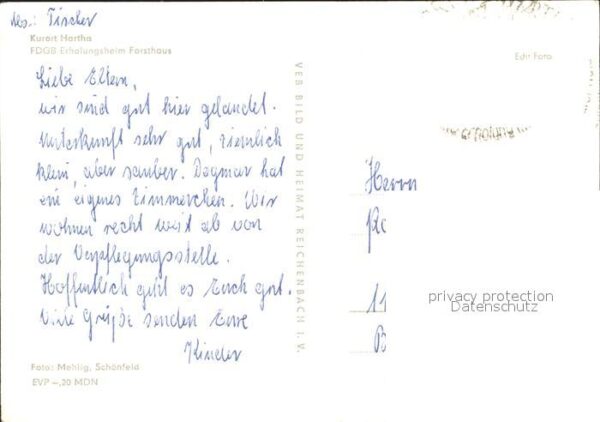 Abs.: Tischer
Kurort Hartha
FDGB Erholungsheim Forsthaus
Echt Foto
Liebe Eltern,
wir sind gut hier gelandet.
Unterkunft sehr gut, ziemlich
klein, aber sauber. Dagmar hat
ein eigenes Zimmerchen. Wir
wohnen recht weit ab von
der Verpflegungsstelle.
Hoffentlich geht es Euch gut.
Viele Grüße senden Eure
Kinder
Foto: Mehlig, Schönfeld
EVP -,20 MDN
VEB BILD UND HEIMAT REICHENBACH I. V.
Herrn
11
privacy protection
Datenschutz